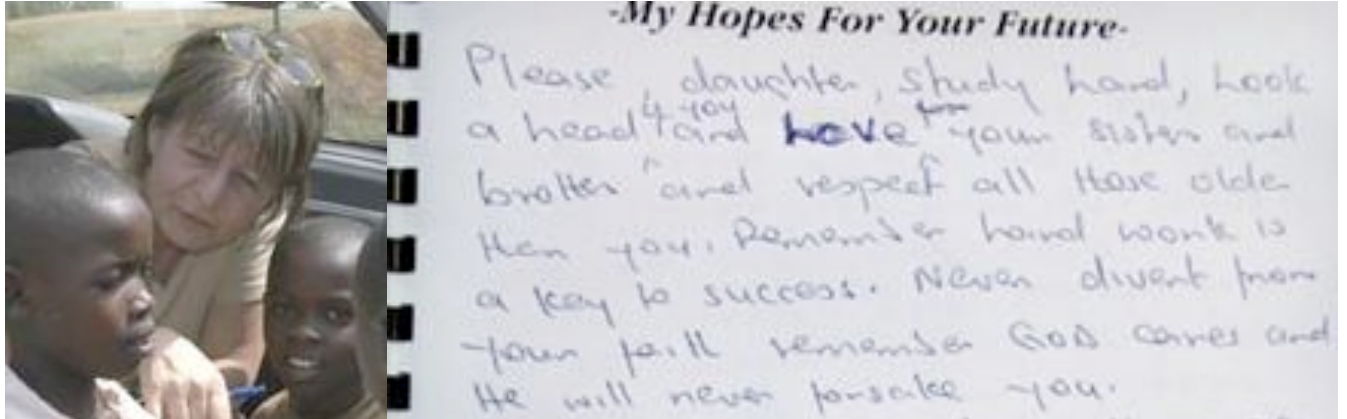 -My Hopes For Your Future-
Please, daughter, study hard, look
a head 4 you and love your sister and
brother and respect all those older
then you. Remember hard work is
a key to success. Never divert from
your faith remember GOD cares and
He will never forsake you.